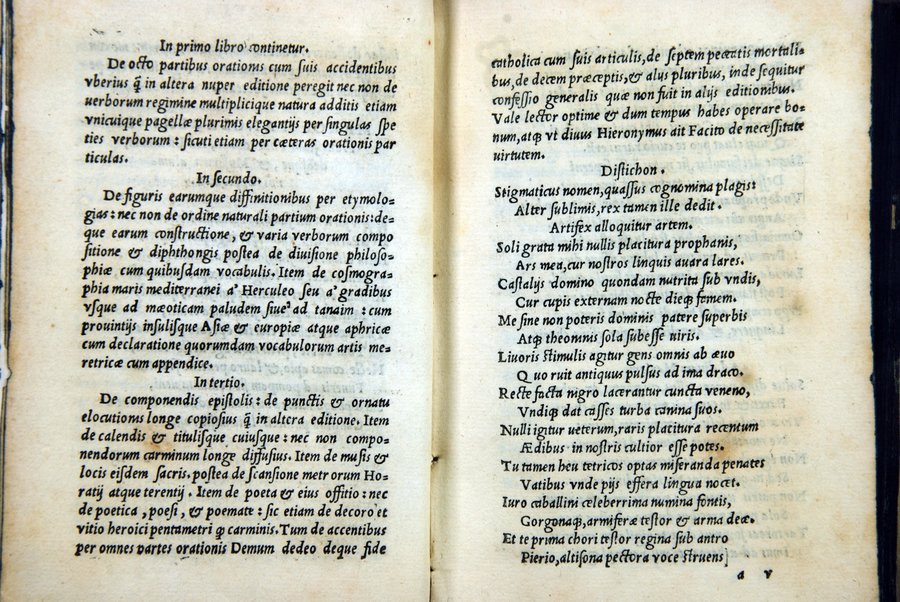 In primo libro continetur.
De octo partibus orationis cum suis accidentibus
vberius q̃ in altera nuper editione peregit nec non de
uerborum regimine multiplicique natura additis etiam
vnicuique pagellæ plurimis elegantijs per singulas spe
ties verborum : sicuti etiam per cæteras orationis par
ticulas.
In secundo.
De figuris earumque diffinitionibus per etymolo=
gias : nec non de ordine naturali partium orationis: de=
que earum constructione, & varia verborum compo
sitione & diphthongis postea de diuisione philoso=
phiæ cum quibusdam vocabulis. Item de cosmogra=
phia maris mediterranei a' Herculeo seu a' gradibus
vsque ad mæoticam paludem siue ad tanaim : cum
prouintijs insulisque Asiæ & europiæ atque aphricæ
cum declaratione quorundam vocabulorum artis me=
retricæ cum appendice.
In tertio.
De componendis epistolis : de punctis & ornatu
elocutionis longe copiosius q̃ in altera editione. Item
de calendis & titulisque cuiusque : nec non compo=
nendorum carminum longe diffusius. Item de musis &
locis eisdem sacris. postea de scansione metrorum Ho=
ratij atque terentij . Item de poeta & eius offitio : nec
de poetica , poesi , & poemate : sic etiam de decoro et
vitio heroici pentametri q; carminis. Tum de accentibus
per omnes partes orationis Demum dedeo deque fide
catholica cum suis articulis, de septem peccatis mortali=
bus, de decem præceptis, & alijs pluribus, inde sequitur
confessio generalis quæ non fuit in alijs editionibus.
Vale lector optime & dum tempus habes operare bo=
num, atq; vt diuus Hieronymus ait Facito de necessitate
uirtutem.
Distichon.
Stigmaticus nomen, quassus cognomina plagis:
Alter sublimis, rex tamen ille dedit.
Artifex alloquitur artem.
Soli grata mihi nullis placitura prophanis,
Ars mea, cur nostros linquis auara lares.
Castalijs domino quondam nutrita sub vndis,
Cur cupis externam nocte dieq; femem.
Me sine non poteris dominis patere superbis
Atq; theoninis sola subesse uiris.
Liuoris stimulis agitur gens omnis ab æuo
Quo ruit antiquus pulsus ad ima draco.
Recte facta nigro lacerantur cuncta veneno,
Vndiq; dat casses turba canina suos.
Nulli igitur ueterum, raris placitura recentum
Ædibus in nostris cultior esse potes.
Tu tamen heu tetricos optas miseranda penates
Vatibus vnde pijs effera lingua nocet.
Iuro caballini celeberrima numina fontis,
Gorgonaq;, armiferæ testor & arma deæ.
Et te prima chori testor regina sub antro
Pierio, altisona pectora voce struens,
a v